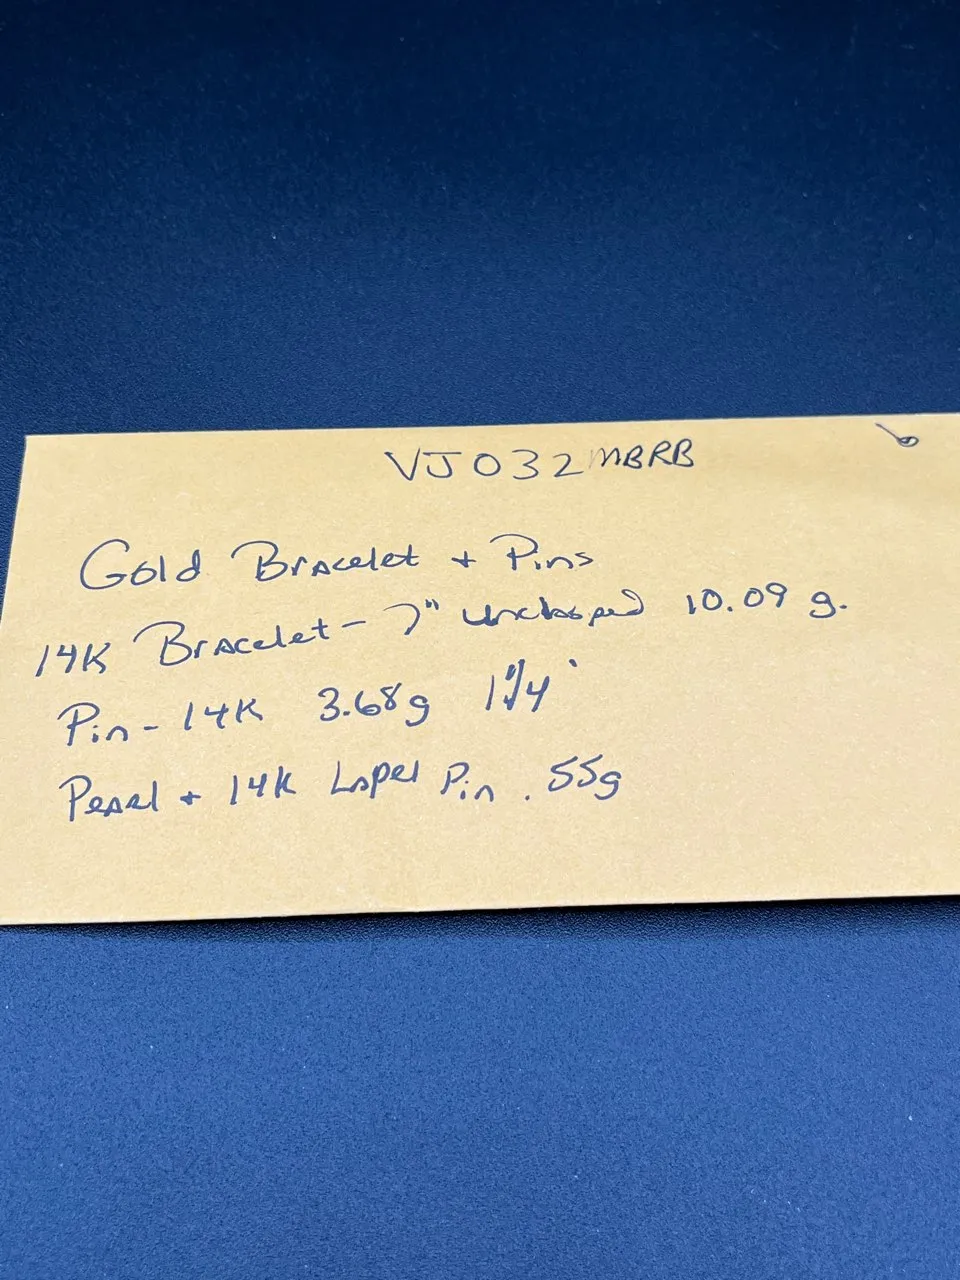 VJ032MBRB
Gold Bracelet + Pins
14K Bracelet - 7" unclasped 10.09 g.
Pin - 14K 3.68g 1 1/4"
Pearl + 14K Lapel Pin .55g